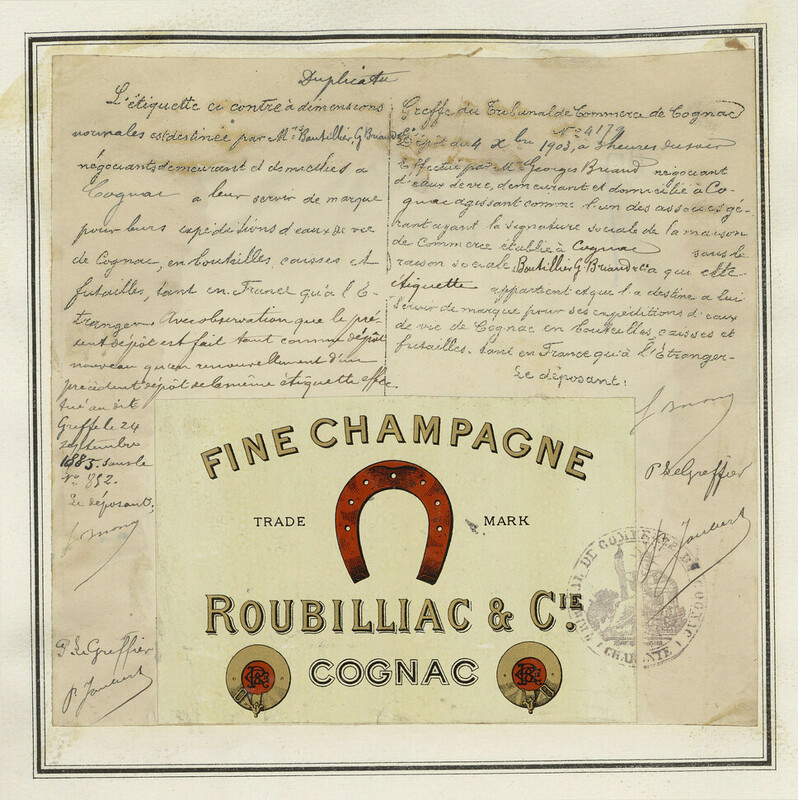 Duplicata
L'étiquette ci contre à dimensions
normales est destinée par MM. Boutillier, G. Briand &
négociants demeurant et domiciliés à
Cognac à leur servir de marque
pour leurs expéditions d'eaux de vie
de Cognac, en bouteilles, caisses et
futailles, tant en France qu'à l'E-
tranger. Avec observation que le pré-
sent dépôt est fait tant comme dépôt
nouveau qu'en renouvellement d'un
précédent dépôt de la même étiquette effec
tué au dit
Greffe le 24
septembre
1885. sous le
No. 852.
Le déposant,
P. Le Greffier
P. Joubert
Greffe du Tribunal de Commerce de Cognac
No. 4179
Dépôt du 4 Xbre 1903, à 3 heures du soir
Effectué par M. Georges Briand négociant
d'eaux de vie, demeurant et domicilié à Co-
gnac agissant comme l'un des associés gé-
rant ayant la signature sociale de la maison
de Commerce établie à Cognac sous la
raison sociale Boutillier G. Briand & Cie à qui cette
étiquette appartient et qui l'a destine à lui
servir de marque pour ses expéditions d'eaux
de vie de Cognac en bouteilles, caisses et
futailles, tant en France qu'à l'Étranger-
Le déposant:
P. Le Greffier
Joubert
FINE CHAMPAGNE
TRADE MARK
ROUBILLIAC & CIE.
COGNAC
TRIBUNAL DE COMMERCE DE COGNAC
(CHARENTE)